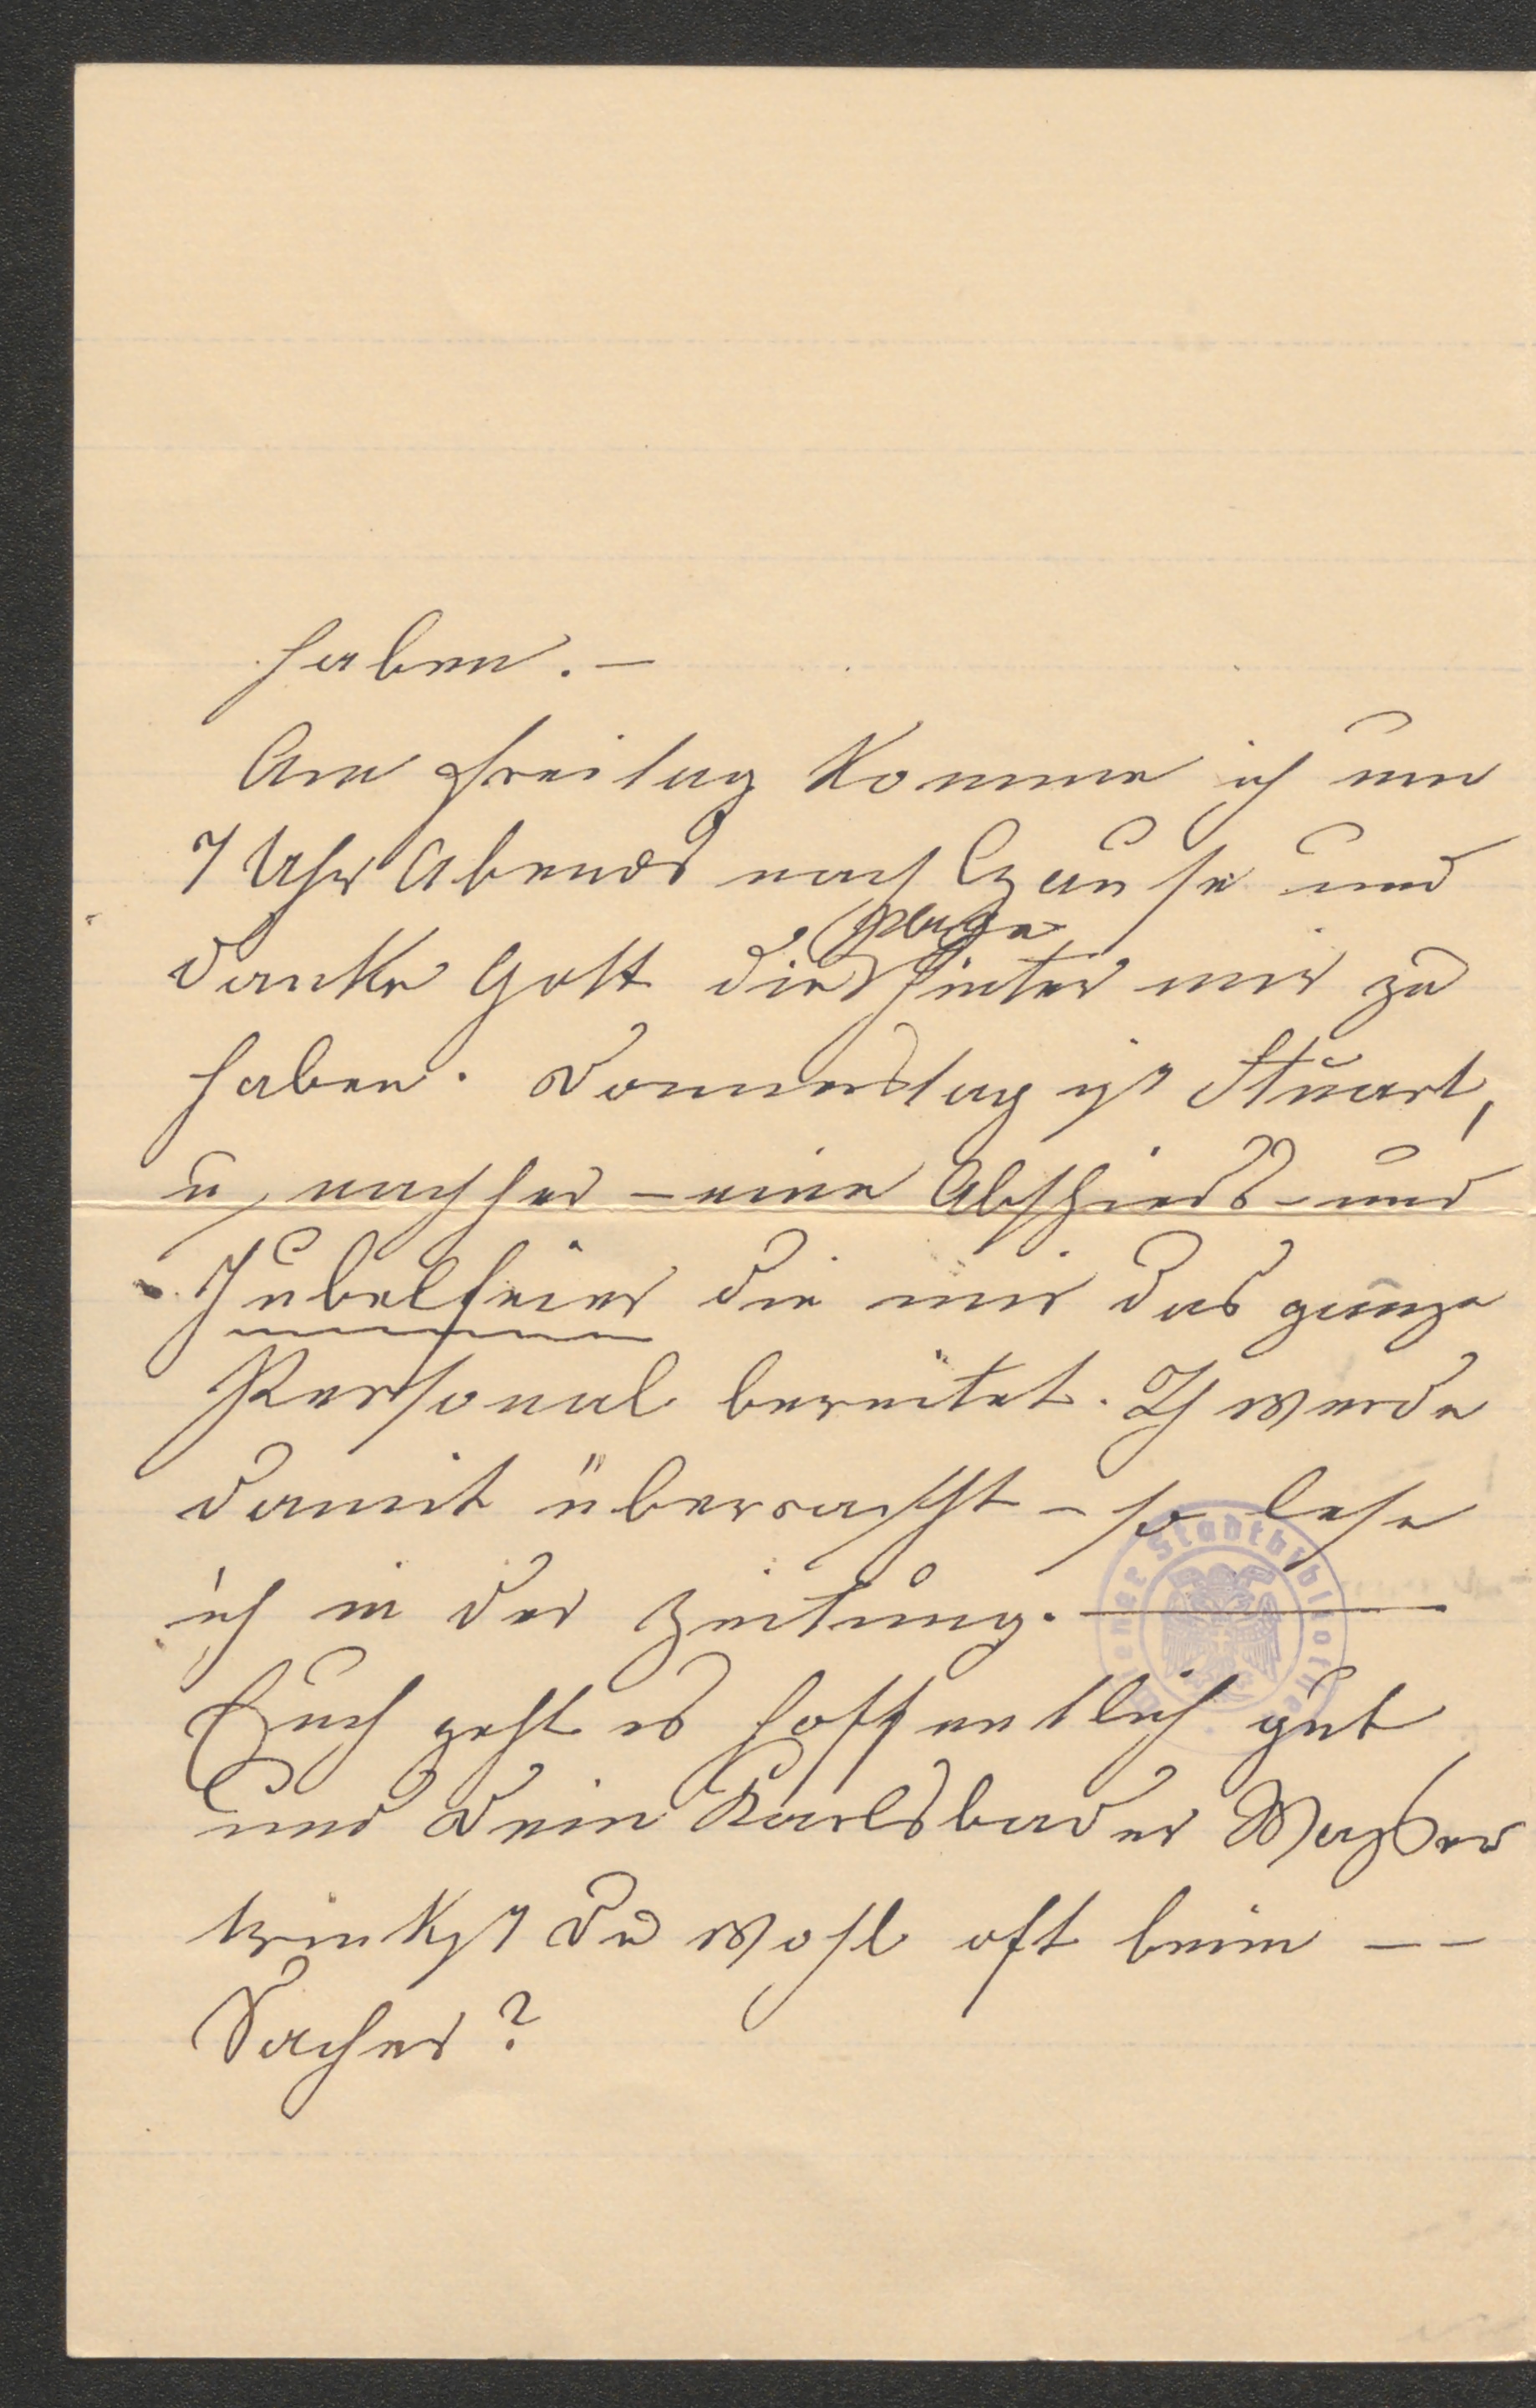 haben. —
Am Freitag komme ich um
7 Uhr Abends nach Hause und
Plage
danke Gott die hinter mir zu
haben. Donnerstag ist Stuart,
u, nachher – eine Abschieds- und
Jubelfeier die mir das ganze
Personal bereitet. Ich werde
damit überrascht – so lese
ich in der Zeitung. —
Wiener Stadtbibliothek
Euch geht es hoffentlich gut
und Dein Karlsbader Waßer
trinkst Du wohl oft beim – –
Sacher?